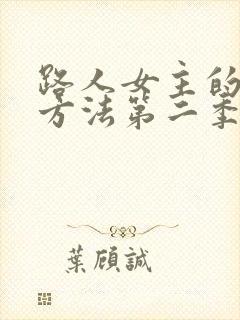 路人女主的
方法第二季
葉顧誠